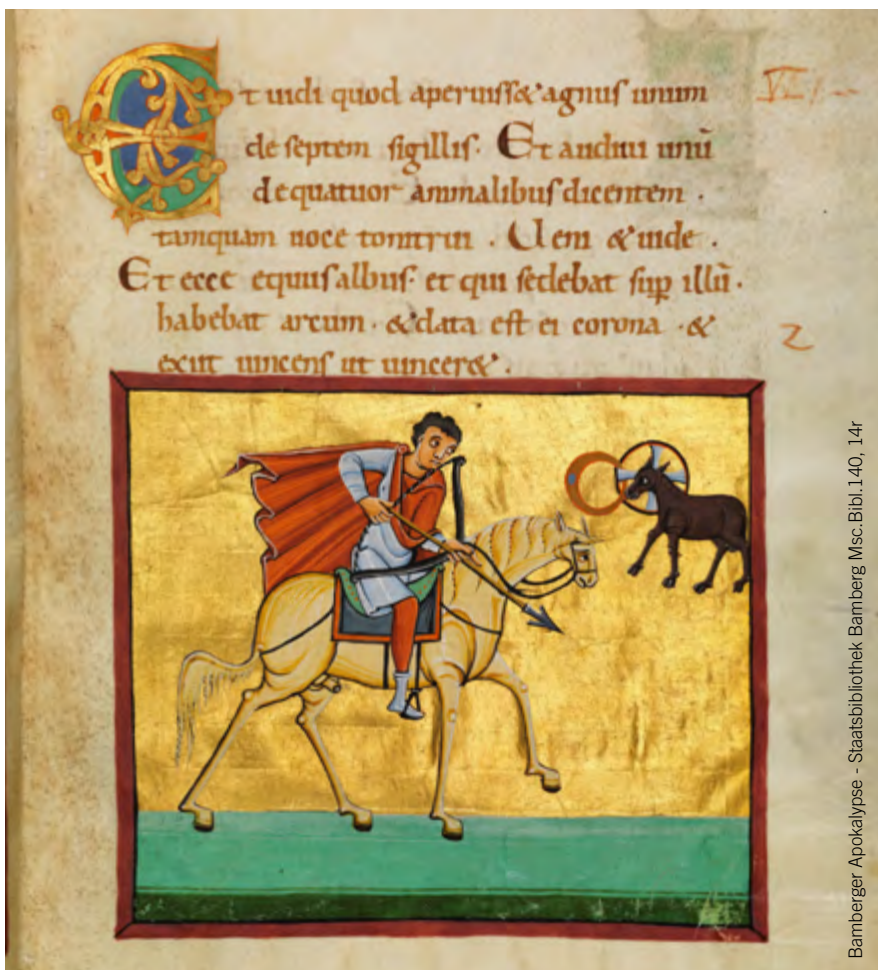 Et uidi quod aperuiss& agnus unum
de septem sigillis. Et audiui unū
de quatuor animalibus dicentem.
tamquam uoce tonitrui. Ueni & uide.
Et ecce equus albus. et qui sedebat sup illū.
habebat arcum. & data est ei corona. &
exiit uincens ut uincer&.
VI
2
Bamberger Apokalypse - Staatsbibliothek Bamberg Msc.Bibl.140, 14r